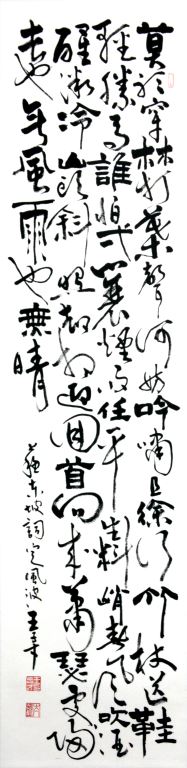 莫聽穿林打葉聲何妨吟嘯且徐行竹杖芒鞋
輕勝馬誰怕一蓑煙雨任平生料峭春風吹酒
醒微冷山頭斜照却相迎回首向來蕭瑟處歸
去也無風雨也無晴
蘇東坡詞定風波 王